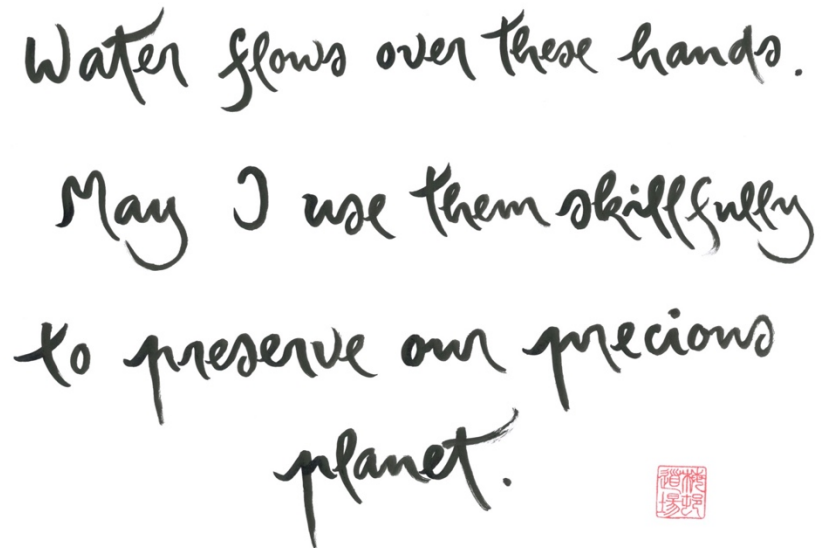 Water flows over these hands.
May I use them skillfully
to preserve our precious
planet.
梅邨
道場